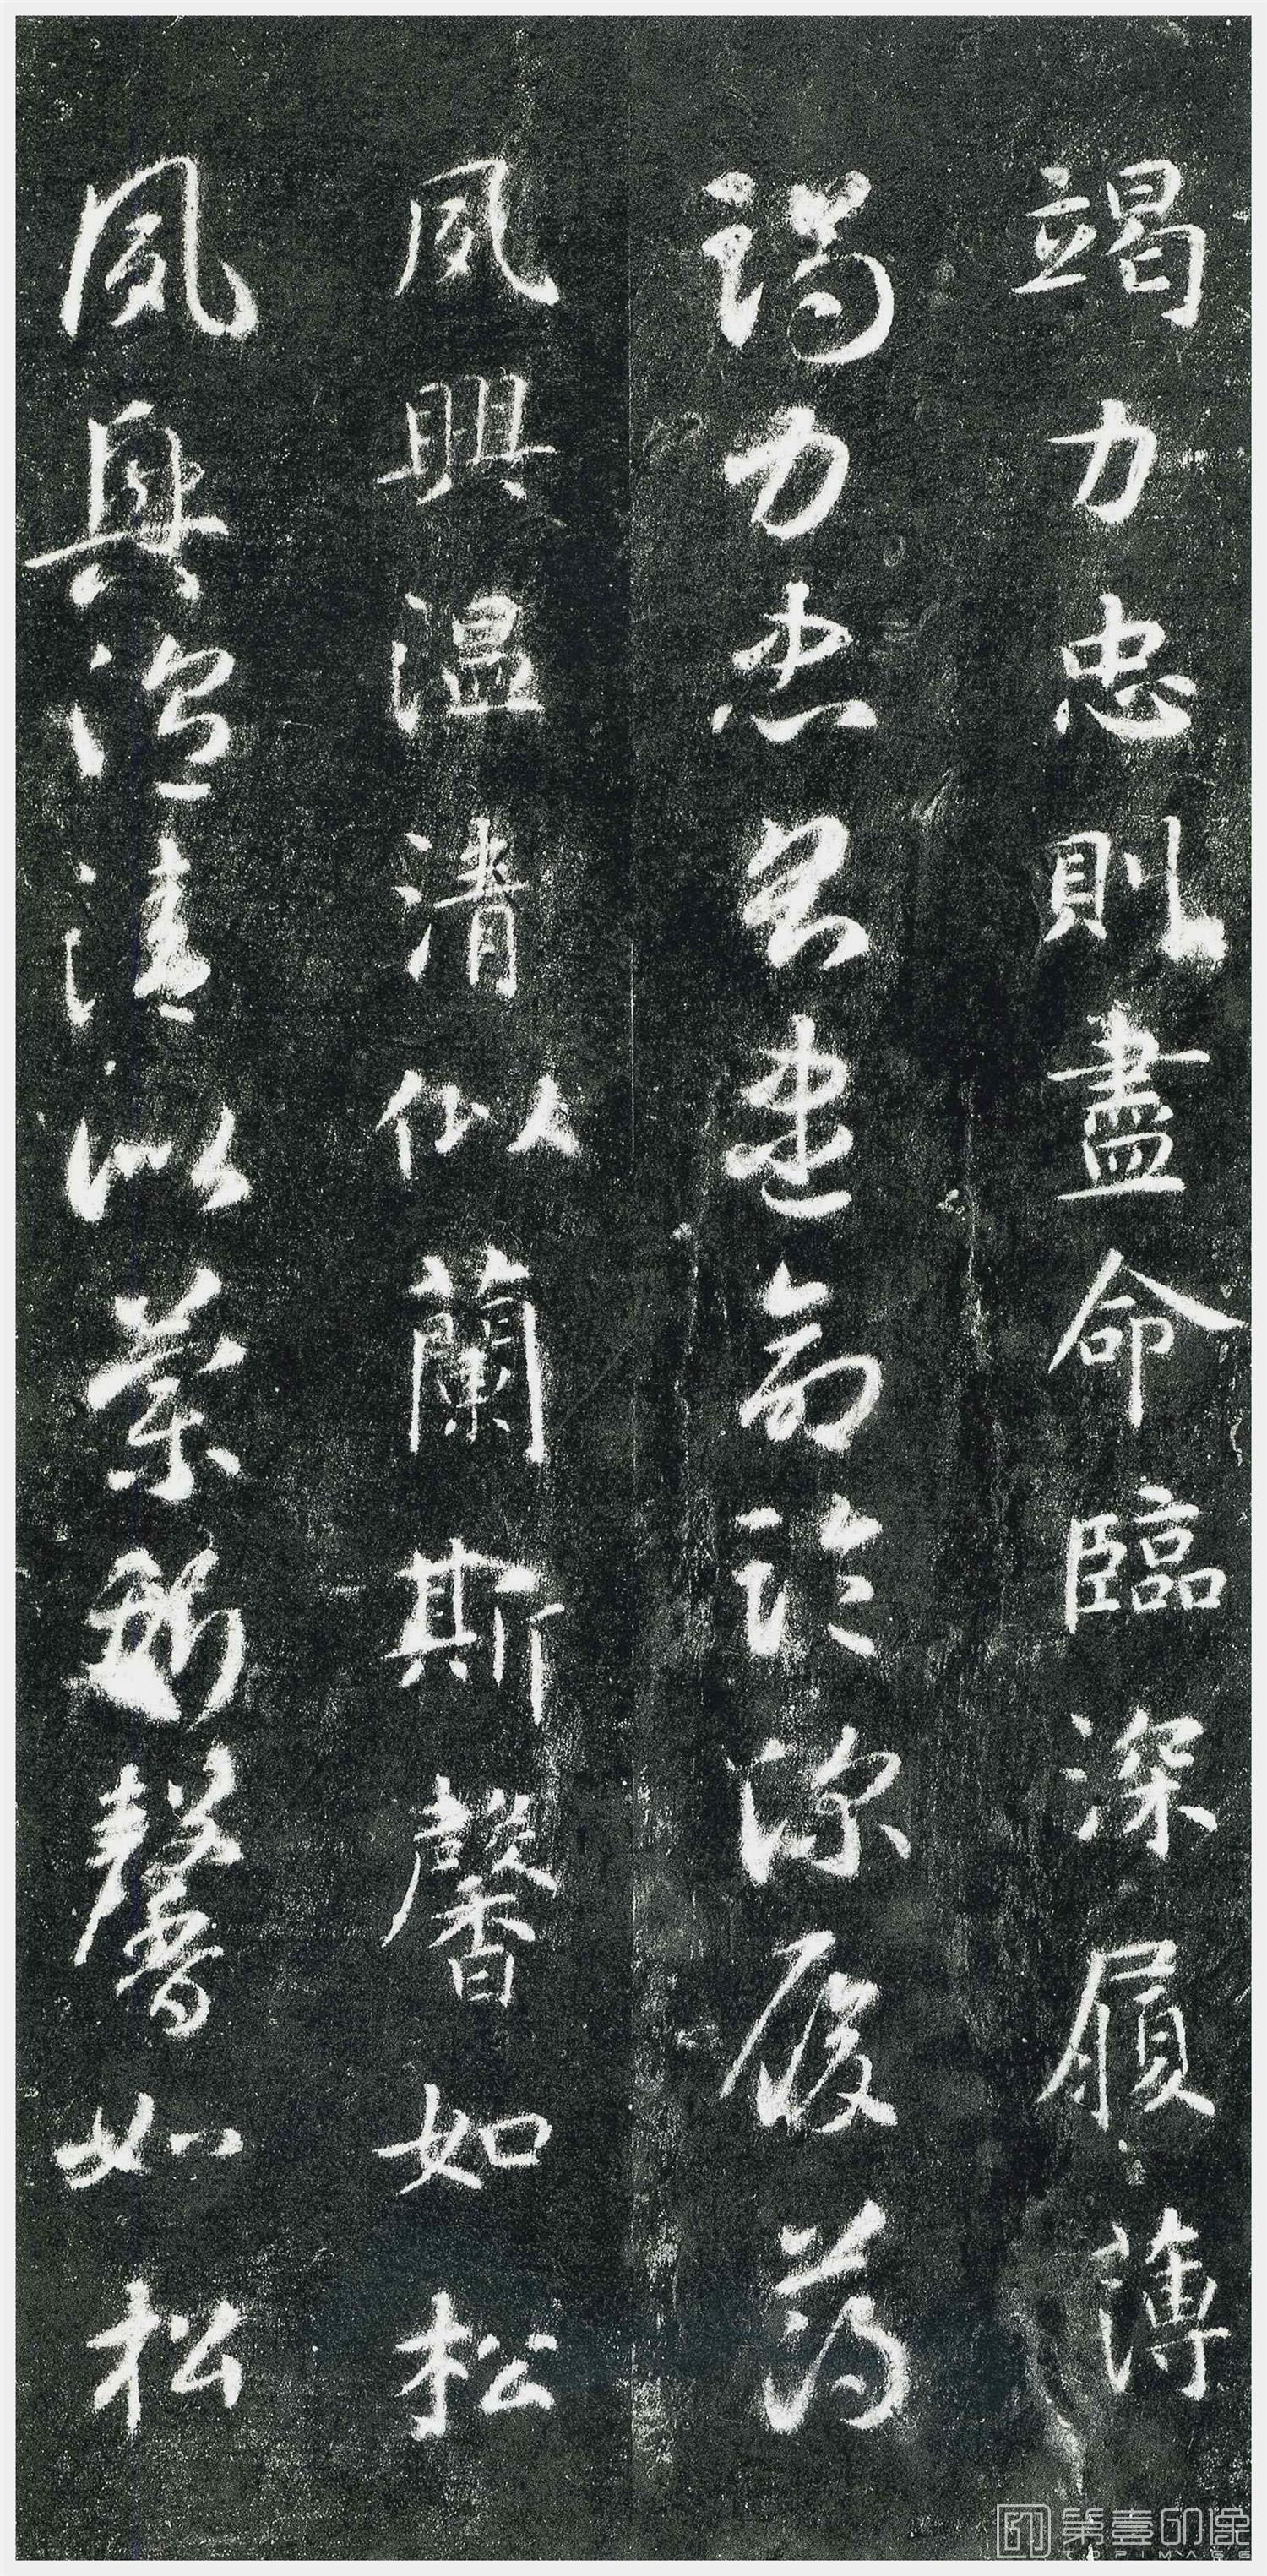 竭力忠則盡命臨深履薄
竭力忠則盡命臨深履薄
夙興温清似蘭斯馨如松
夙興温清似蘭斯馨如松
第壹印像
TOPIMAGE